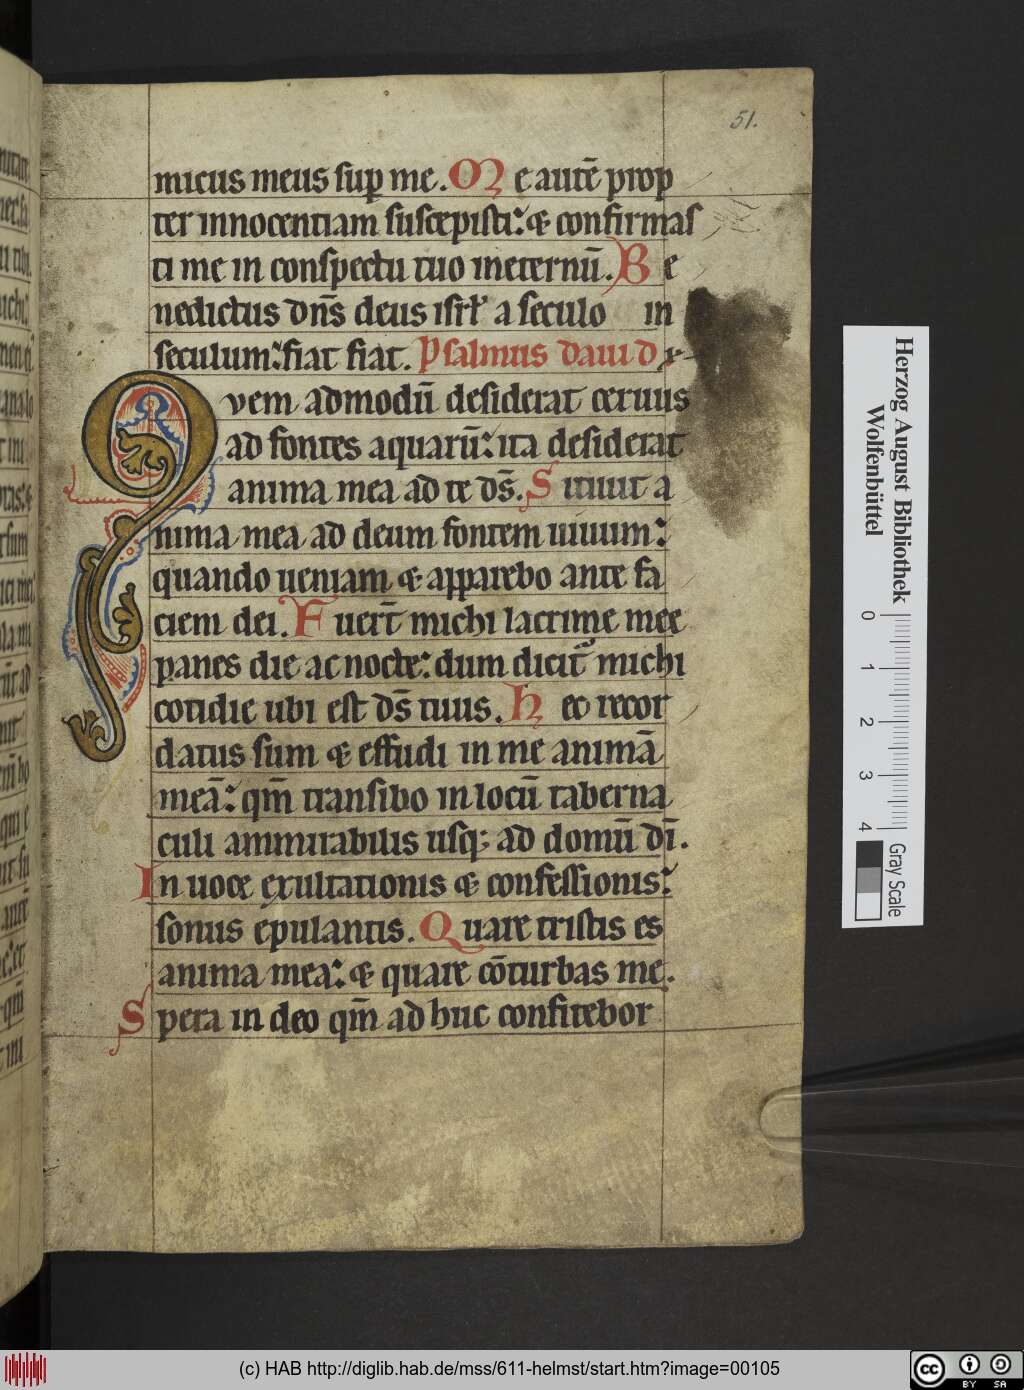 51.
micus meus sup me. Me autē prop
ter innocentiam suscepisti: & confirmas
ti me in conspectu tuo ineternū. Be
nedictus dn̄s deus isrl' a seculo in
seculum: fiat fiat. Psalmus dauid
Qvem admodū desiderat ceruus
ad fontes aquarū: ita desiderat
anima mea ad te ds̄. Sitiuit a
nima mea ad deum fontem uiuum:
quando ueniam & apparebo ante fa
ciem dei. Fuer̄t michi lacrime mee
panes die ac nocte: dum dicit̉ michi
cotidie ubi est ds̄ tuus. Hec recor
datus sum & effudi in me animā
meā: qm̄ transibo in locū taberna
culi ammirabilis usq; ad domū dī.
In uoce exultationis & confessionis:
sonus epulantis. Quare tristis es
anima mea: & quare cōturbas me.
Spera in deo qm̄ ad huc confitebor
Herzog August Bibliothek
Wolfenbüttel
0 1 2 3 4
Gray Scale
(c) HAB http://diglib.hab.de/mss/611-helmst/start.htm?image=00105
cc BY SA